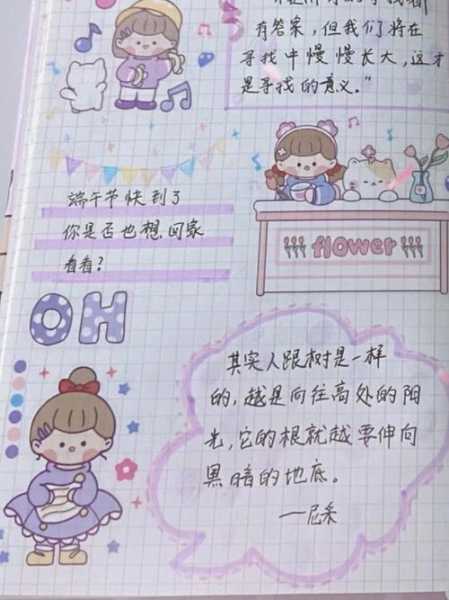 有答案，但我们将在
寻找中慢慢长大，这才
是寻找的意义。"
端午节快到了
你是否也想回家
看看？
flower
OH
其实人跟树是一样
的，越是向往高处的阳
光，它的根就越要伸向
黑暗的地底。
——尼采